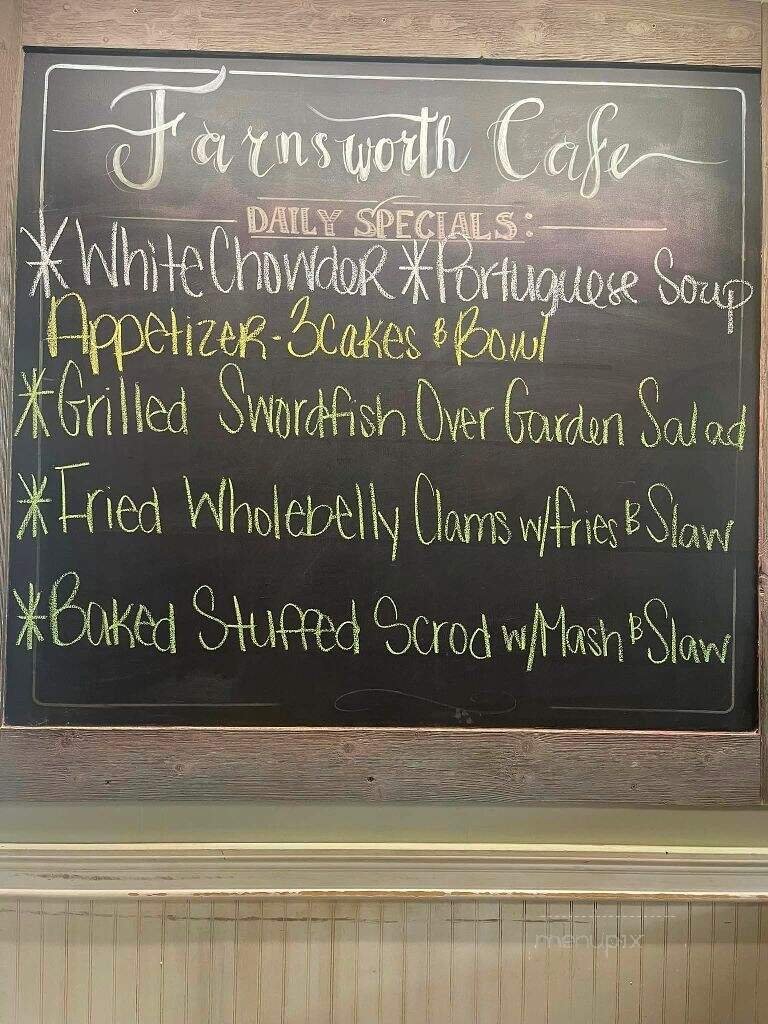 Farnsworth Cafe
DAILY SPECIALS:
*White Chowder *Portuguese Soup
Appetizer - 3 cakes & Bowl
*Grilled Swordfish Over Garden Salad
*Fried Wholebelly Clams w/fries & Slaw
*Baked Stuffed Scrod w/Mash & Slaw
menupix